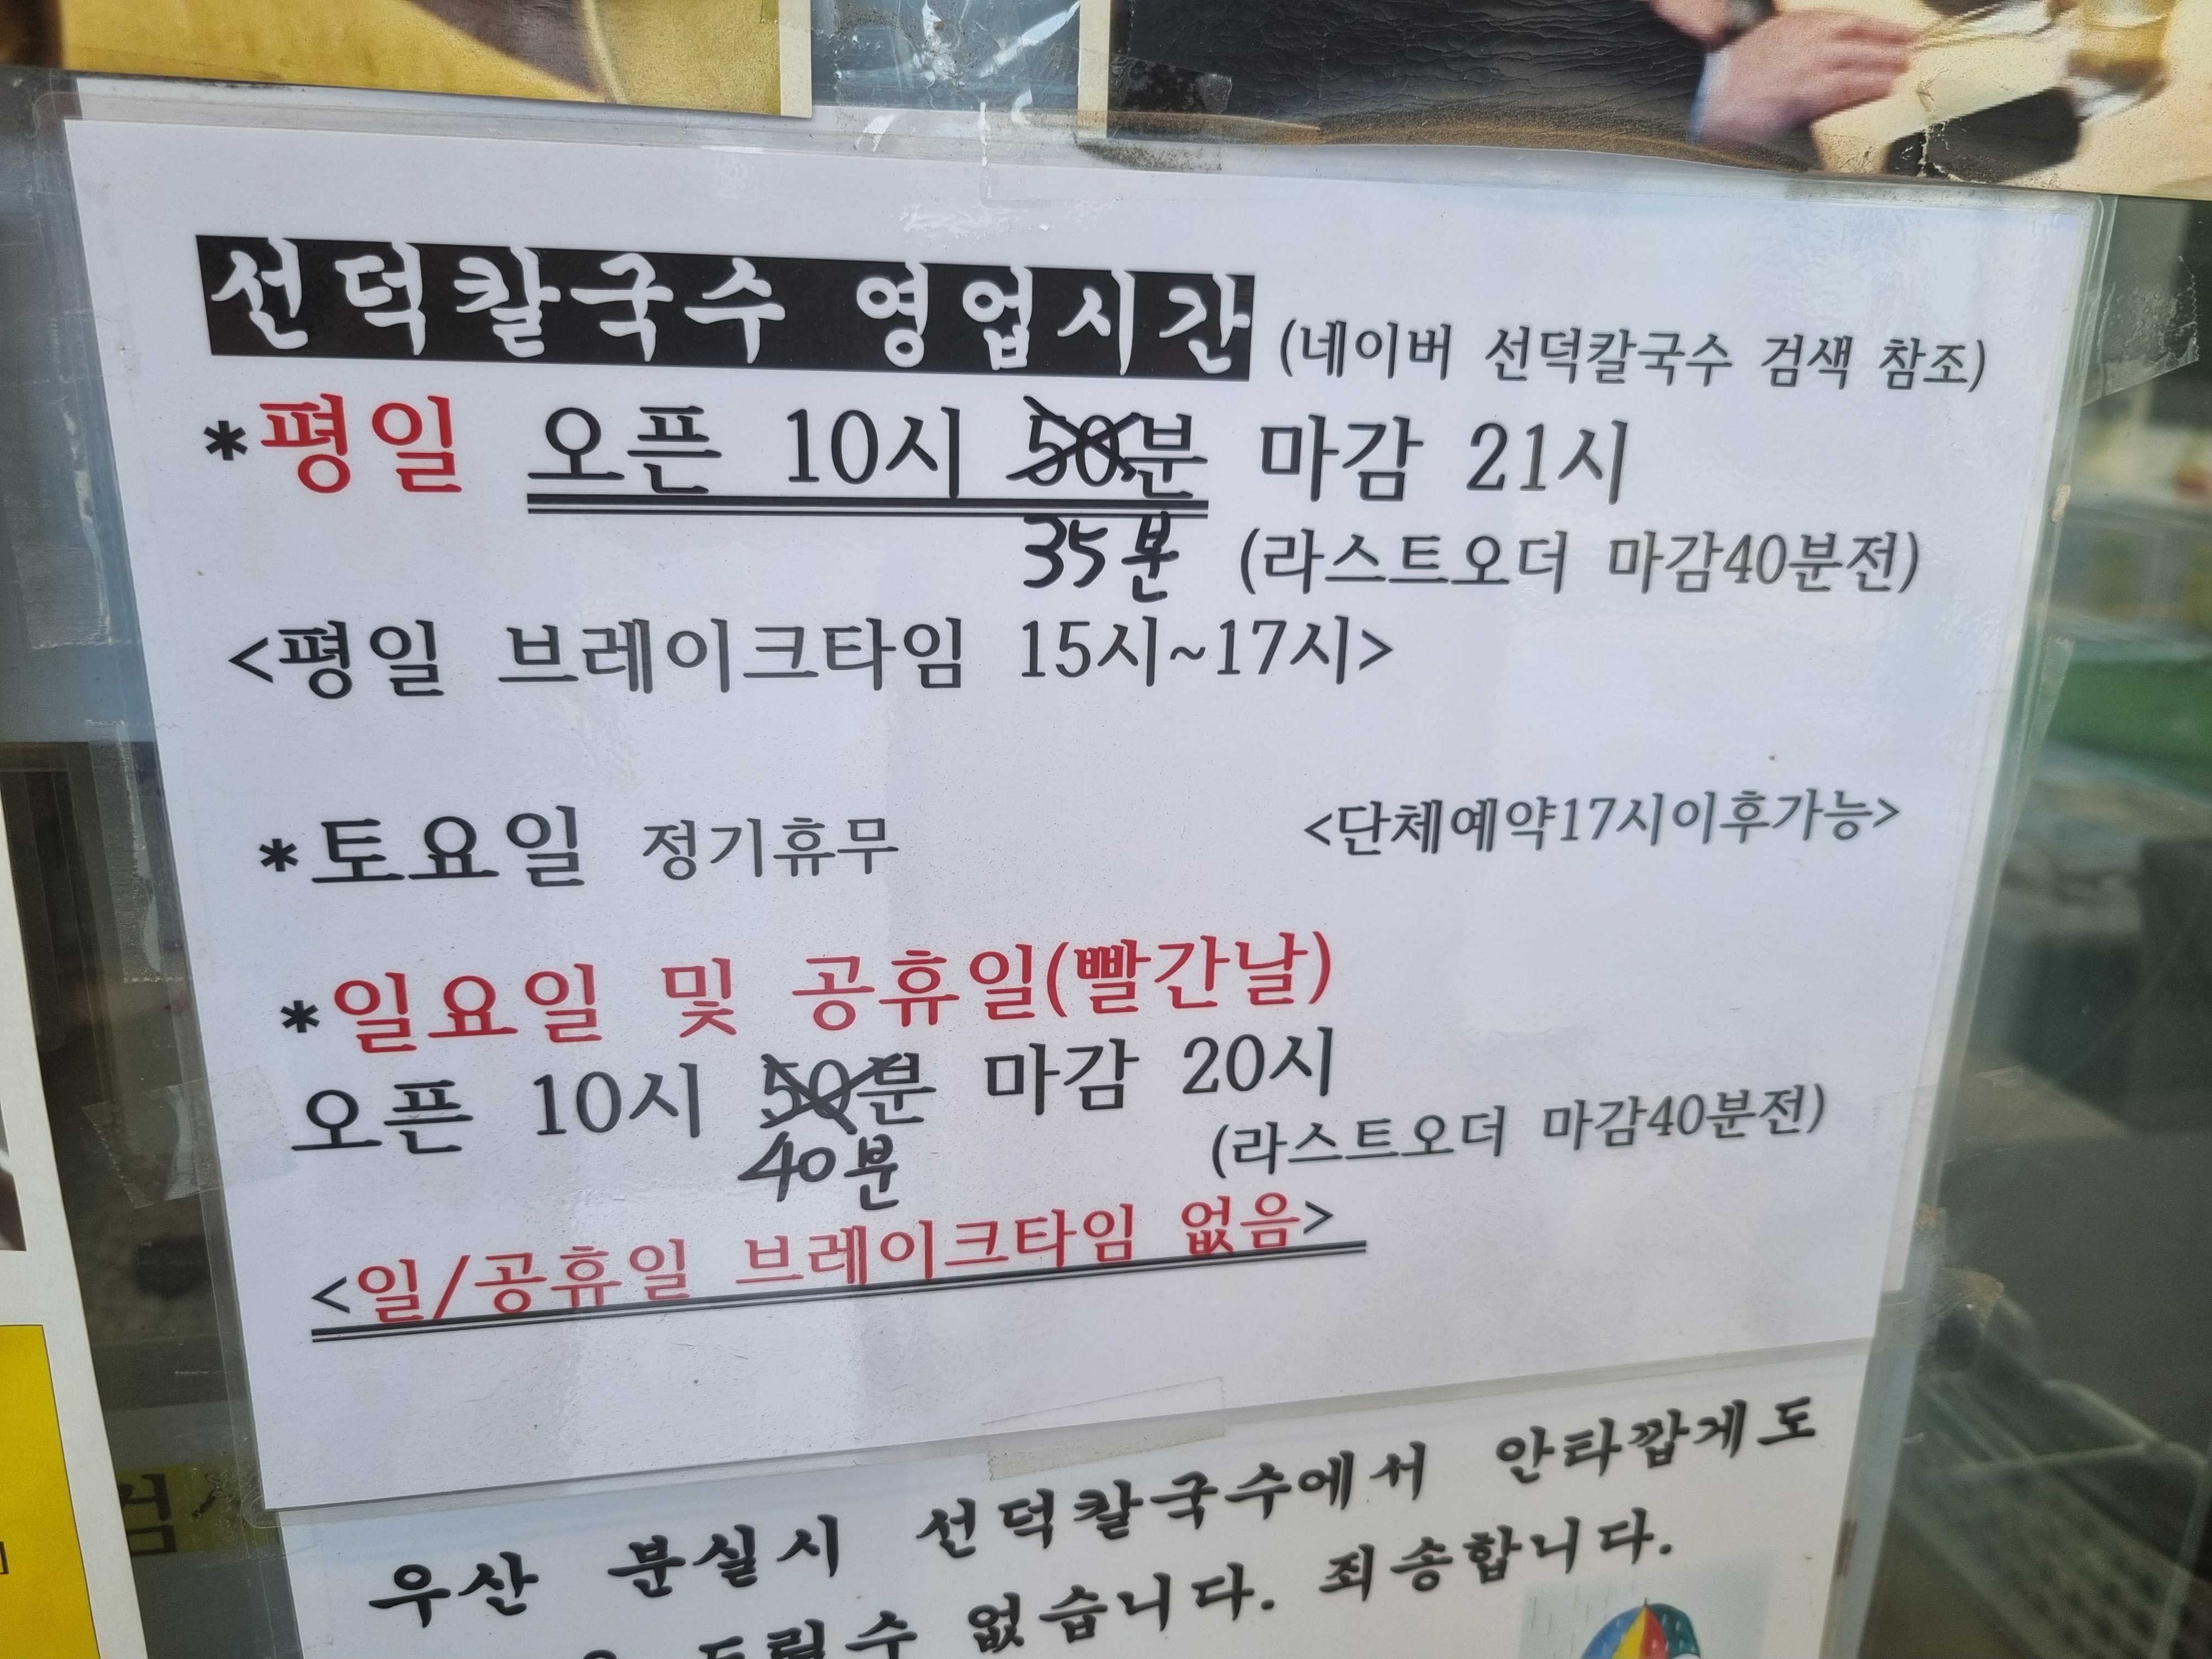 선덕칼국수 영업시간 (네이버 선덕칼국수 검색 참조)
*평일 오픈 10시 50분 마감 21시
35분 (라스트오더 마감40분전)
<평일 브레이크타임 15시~17시>
*토요일 정기휴무 <단체예약17시이후가능>
*일요일 및 공휴일(빨간날)
오픈 10시 50분 마감 20시
40분 (라스트오더 마감40분전)
<일/공휴일 브레이크타임 없음>
우산 분실시 선덕칼국수에서 안타깝게도
드릴수 없습니다. 죄송합니다.